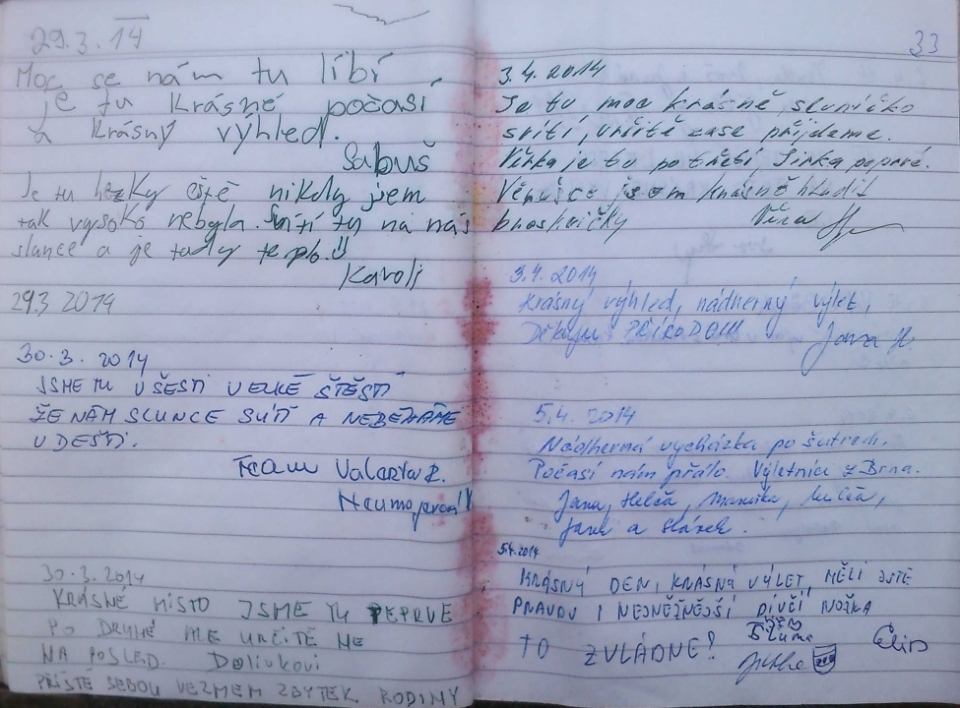 29.3.14
Moc se nám tu líbí
je tu krásné počasí
a krásný výhled.
Sabuš
Je tu hezky eště nikdy jsem
tak vysoko nebyla. Svítí tu na nás
slunce a je tady teplo.!!
Karoli
29.3 2014
30.3. 2014
JSME TU V ŠESTI VELKÉ ŠTĚSTÍ
ŽE NÁM SLUNCE SVÍTÍ A NEBĚHÁME
V DEŠTI.
Team Valašta R.
30.3.2014
KRÁSNÉ MÍSTO JSME TU PEPRVE
PO DRUHÉ ALE URČITĚ NE
NA POSLED. Dolívkovi
PŘÍŠTĚ SEBOU VEZMEM ZBYTEK RODINY
33
3.4. 2014
Je tu moc krásně sluníčko
svítí, určitě zase přijdeme.
Věrka je tu po třetí, Jirka poprvé.
Věrušce jsem krásně hladil
broskvičky Věra
3.4. 2014
Krásný výhled, nádherný výlet,
Děkuju PŘÍRODO!!! Jana H
5.4. 2014
Nádherná vycházka po šutrech.
Počasí nám přálo. Výletníci z Brna.
Jana, Helča,
a
5.4.2014
KRÁSNÝ DEN, KRÁSNÁ VÝLET, MĚLI JSTE
PRAVDU I NEJNĚŽNĚJŠÍ DÍVČÍ NOŽKA
TO ZVLÁDNE!